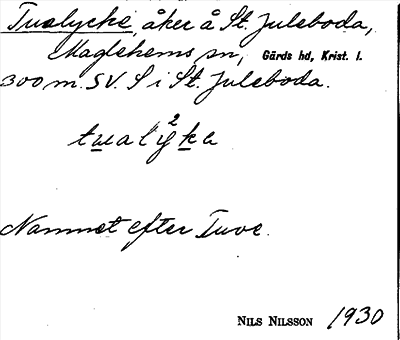 Tuelycke, åker å St. Juleboda,
Maglehems sn, Gärds hd, Krist. l.
300 m. SV. S i St. Juleboda.
Namnet efter Tuve.
NILS NILSSON 1930